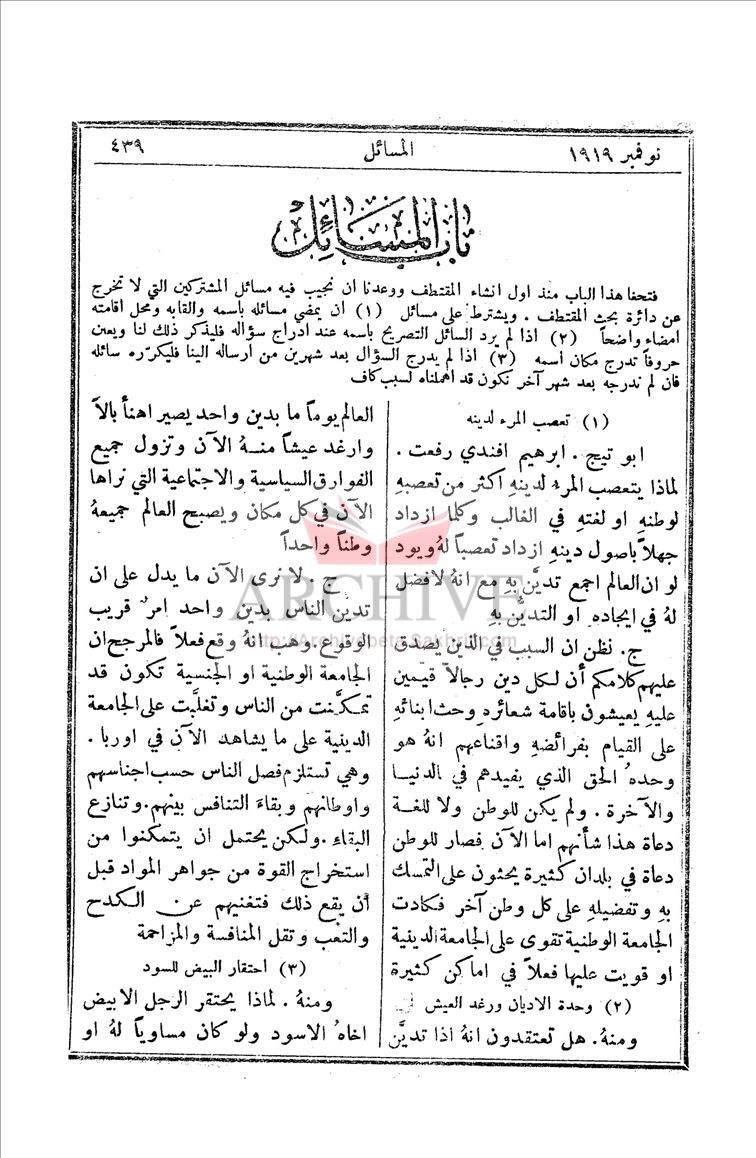 نوفمبر ١٩١٩ المسائل ٤٣٩
باب المسائل
فتحنا هذا الباب منذ اول انشاء المقتطف ووعدنا ان نجيب فيه مسائل المشتركين التي لا تخرج
عن دائرة بحث المقتطف . ويشترط على مسائل (١) ان يمضي مسائله باسمه والقابه ومحل اقامته
امضاء واضحاً (٢) اذا لم يرد السائل التصريح باسمه عند ادراج سؤاله فليذكر ذلك لنا ويعين
حروفاً تدرج مكان اسمه (٣) اذا لم يدرج السؤال بعد شهرين من ارساله الينا فليكرّره سائله
فان لم ندرجه بعد شهر آخر نكون قد اهملناه لسبب كاف
(١) تعصب المرء لدينه
ابو تيج . ابرهيم افندي رفعت .
لماذا يتعصب المرء لدينهِ اكثر من تعصبهِ
لوطنهِ او لغتهِ في الغالب وكلما ازداد
جهلاً باصول دينهِ ازداد تعصباً لهُ ويود
لو ان العالم اجمع تديَّن بهِ مع انهُ لا فضل
لهُ في ايجاده او التديُّن بهِ
ج. نظن ان السبب في الذين يصدق
عليهم كلامكم أن لكل دين رجالاً قيمين
عليهِ يعيشون باقامة شعائره وحث ابنائهِ
على القيام بفرائضهِ واقناعهم انهُ هو
وحدهُ الحق الذي يفيدهم في الدنيا
والآخرة . ولم يكن للوطن ولا للغة
دعاة هذا شأنهم اما الآن فصار للوطن
دعاة في بلدان كثيرة يحثون على التمسك
بهِ وتفضيلهِ على كل وطن آخر فكادت
الجامعة الوطنية تقوى على الجامعة الدينية
او قويت عليها فعلاً في اماكن كثيرة
(٢) وحدة الاديان ورغد العيش
ومنهُ. هل تعتقدون انهُ اذا تديَّن
العالم يوماً ما بدين واحد يصير اهنأ بالاً
وارغد عيشاً منهُ الآن وتزول جميع
الفوارق السياسية والاجتماعية التي نراها
الآن في كل مكان ويصبح العالم جميعهُ
وطناً واحداً
ج . لا نرى الآن ما يدل على ان
تدين الناس بدين واحد امرٌ قريب
الوقوع. وهب انهُ وقع فعلاً فالمرجح ان
الجامعة الوطنية او الجنسية تكون قد
تمكَّنت من الناس وتغلَّبت على الجامعة
الدينية على ما يشاهد الآن في اوربا .
وهي تستلزم فصل الناس حسب اجناسهم
واوطانهم وبقاءَ التنافس بينهم. وتنازع
البقاءِ. ولكن يحتمل ان يتمكنوا من
استخراج القوة من جواهر المواد قبل
أن يقع ذلك فتغنيهم عن الكدح
والتعب وتقل المنافسة والمزاحمة
(٣) احتقار البيض للسود
ومنهُ . لماذا يحتقر الرجل الابيض
اخاهُ الاسود ولو كان مساوياً لهُ او
ARCHIVE
http://Archivebeta.Sakhrit.com